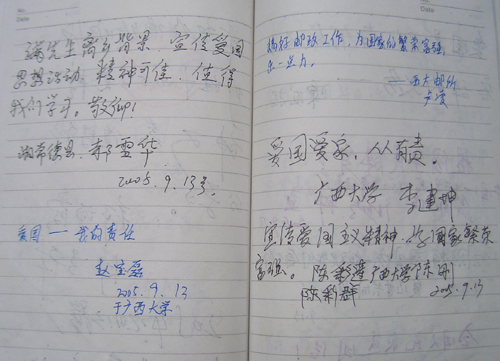 No.
Date
先生离乡背景,宣传爱国
思想活动,精神可佳,值得
我们学习。敬仰!
常德县 郭雪华
2005.9.13号.
爱国——我的责任
赵宝磊
2005.9.13
于广西大学
Date
搞好邮政工作,为国家的繁荣富强
尽一点力。
——西大邮所
爱国爱家,人人有责。
广西大学 李建坤
宣传爱国主义精神,为国家繁荣
富强。陈彩莲 广西大学
陈彩群 2005.9.13